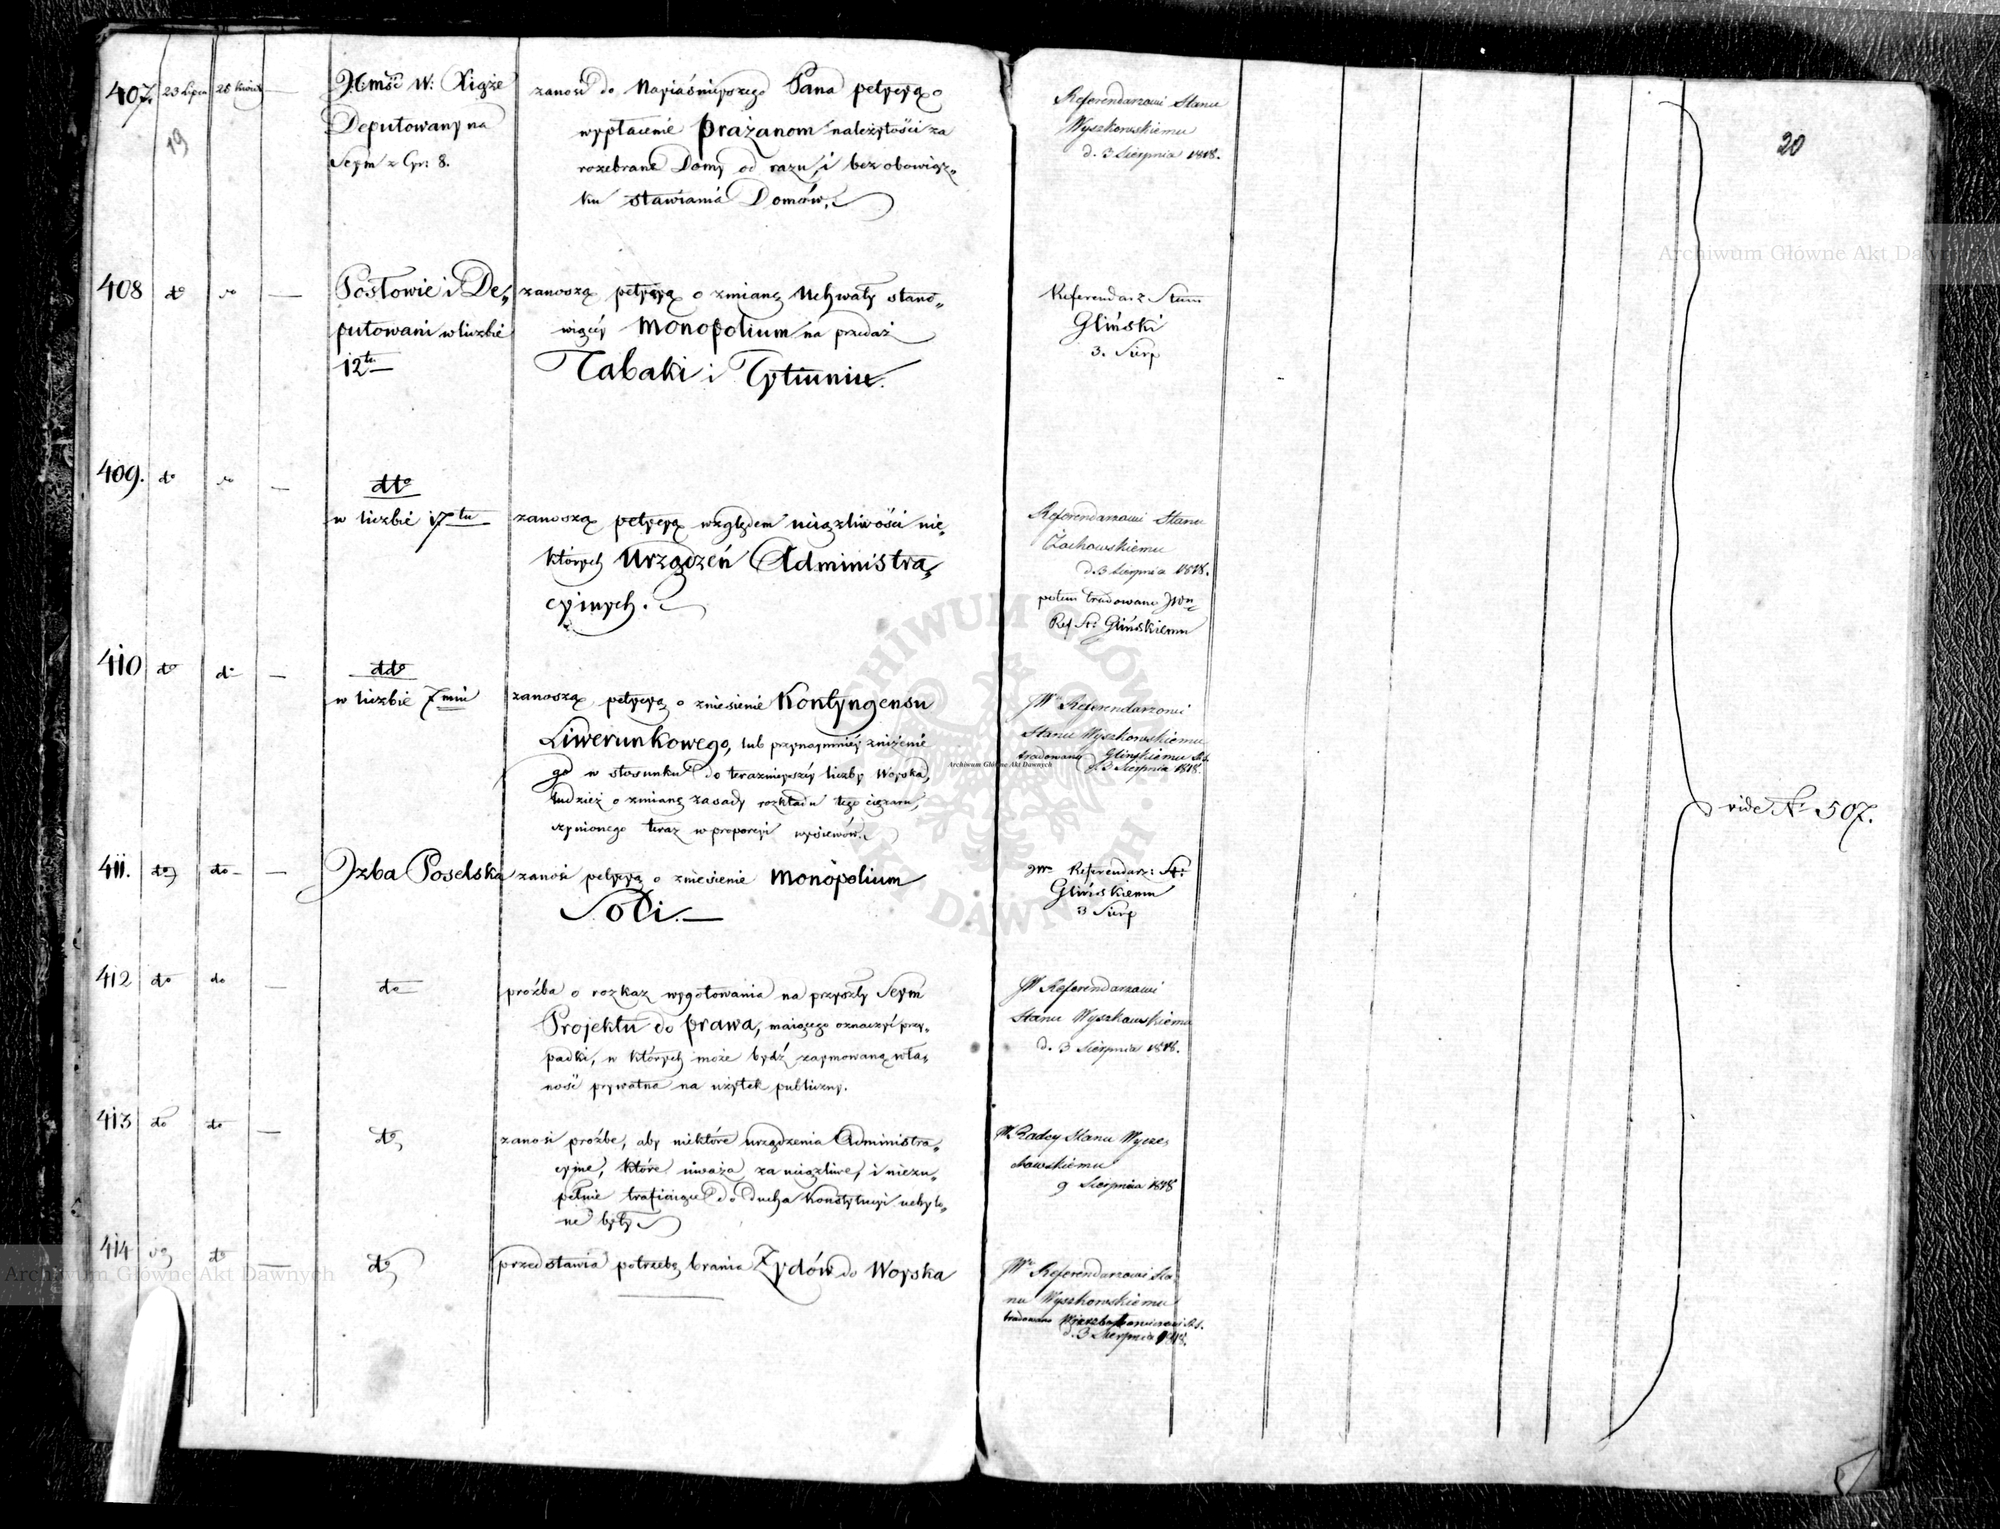 407. 23 Lipca 28 Kwiet —
19
Jmść W: Xiąże
Deputowany na
Seym z Cyr: 8.
zanosi do Nayiaśnieyszego Pana petycyą o
wypłacenie Prażanom należytości za
rozebrane Domy od razu, i bez obowiąz„
ku stawiania Domów.
Referendarzowi Stanu
Wyszkowskiemu
d. 3 Sierpnia 1818.
20
408 do —
Posłowie i De„
putowani w liczbie
12tu
zanoszą petycyą o zmianę Uchwały stano„
wiącey Monopolium na przedaż
Tabaki i Tytuniu.
Referendarz Stanu
Gliński
3. Sierp
409. do —
dto
w liczbie 17tu
zanoszą petycyą względem uciążliwości nie„
których Urządzeń Administra„
cyinych.
Referendarzowi Stanu
Żochowskiemu
d. 3 Sierpnia 1818.
potem tradowano JWu
Ref St: Glińskiemu
410 do do —
ddo
w liczbie 7miu
zanoszą petycyą o zniesienie Kontyngensu
Liwerunkowego, lub przynaymniéy zniżenie
go w stosunku do teraznieyszéy liczby Woyska,
tudzież o zmianę zasady rozkładu tego ciężaru,
czynionego teraz w proporcyi wysiewów.
JWu Referendarzowi
Stanu Wyszkowskiemu
tradowany Glińskiemu R.S.
d. 3 Sierpnia 1818.
vide No 507.
411. do do — —
Izba Poselska
zanosi petycyą o zniesienie Monopolium
Soli. —
JWu Referendarz: St:
Glińskiemu
3 Sierp
412 do do —
do
proźba o rozkaz wygotowania na przyszły Seym
Projektu do prawa, maiącego oznaczyć przy„
padki, w których może bydź zaymowaną włas„
ność prywatna na użytek publiczny.
JW Referendarzowi
Stanu Wyszkowskiemu
d. 3 Sierpnia 1818.
413 do do —
do
zanosi proźbę, aby niektóre urządzenia Administra„
cyine, które uważa za uciążliwe, i niezu„
pełnie trafiaiące do ducha Konstytucyi uchylo„
ne były.
JW Radcy Stanu Wycze„
chowskiemu
9 Sierpnia 1818
414 do do —
do
przedstawia potrzebę brania Żydów do Woyska
JWu Referendarzowi Sta„
nu Wyszkowskiemu
tradowano R.S.
d. 3 Sierpnia 1818.
Archiwum Główne Akt Dawnych
Archiwum Główne Akt Dawnych
Archiwum Główne Akt Dawnych
ARCHIWUM GŁÓWNE AKT DAWNYCH